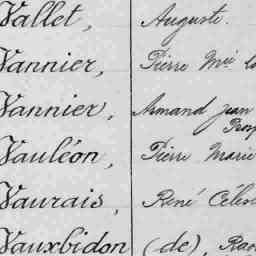 Vallet, Auguste.
Vannier, Pierre Mie
Vannier, Armand Jean
Vauléon, Pierre Marie
Vaurais, René
Vauxbidon (de),